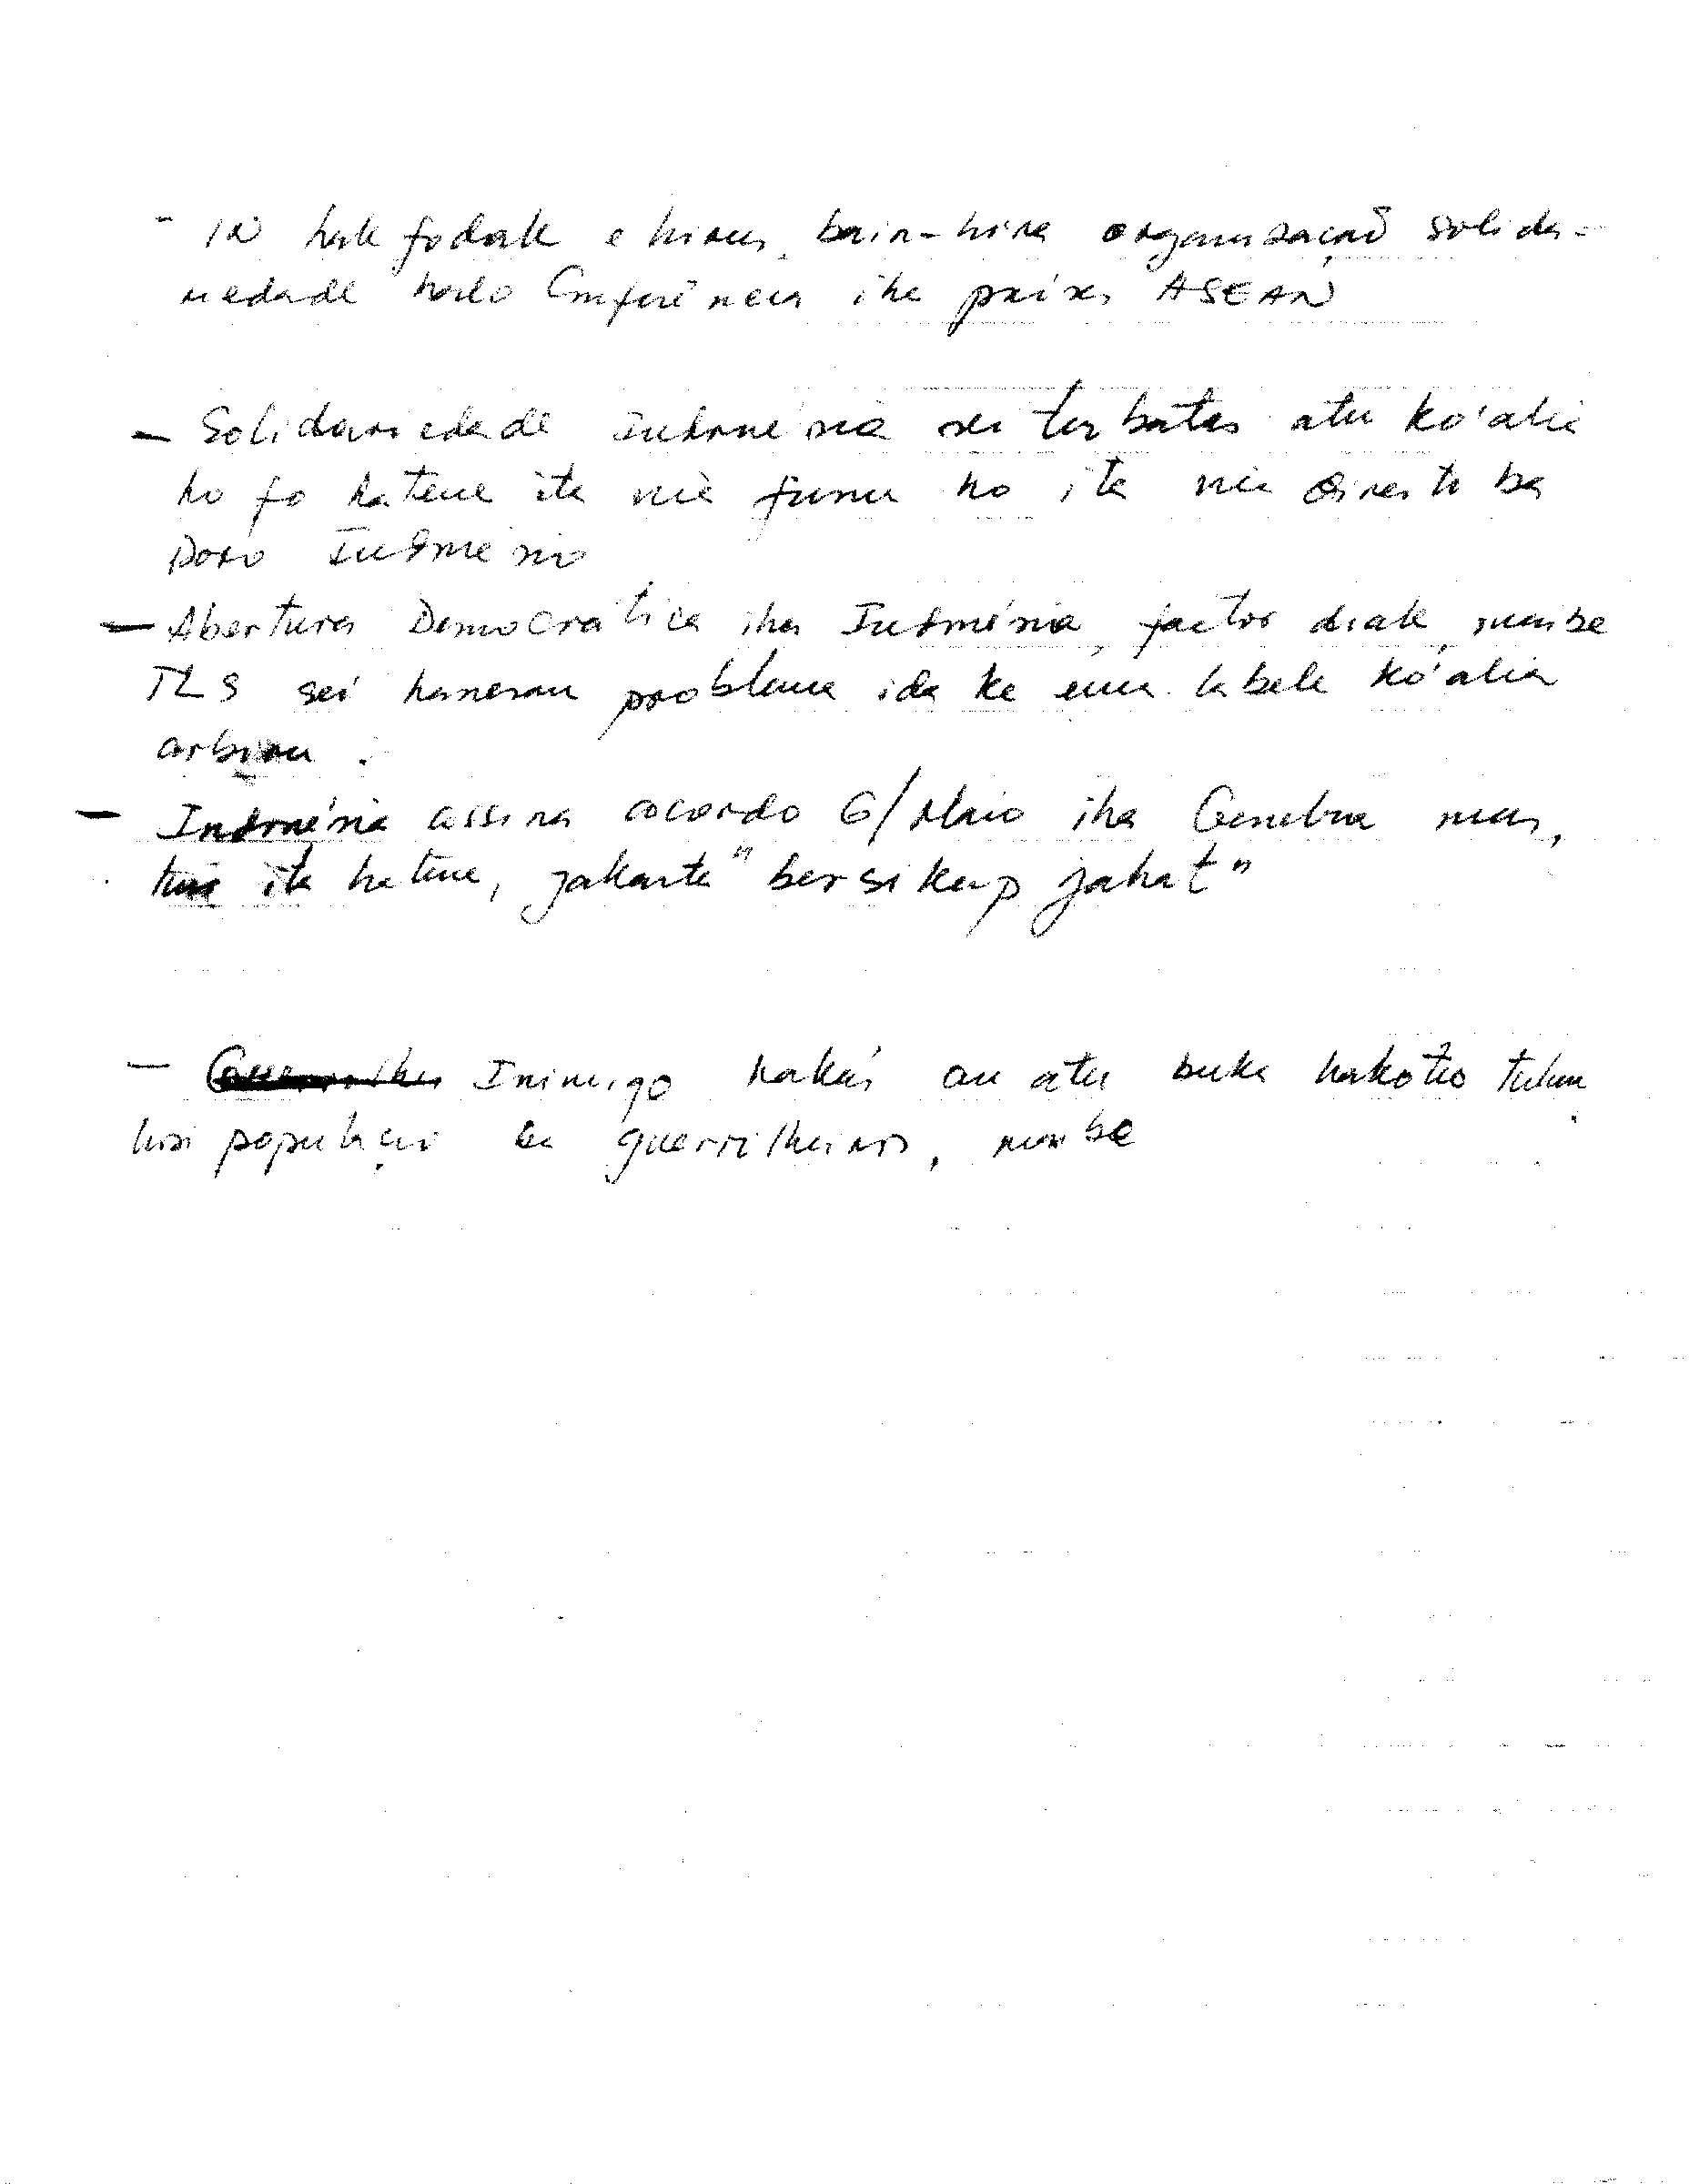 - IN hakfodak e hirus, bain-hira organização solida-
riedade halo Conferência iha países ASEAN
- Solidariedade Indonésia sei terbatas atu ko'alia
ho fo hatene ita nia funu ho ita nia direito ba
Povo Indonésio
- Abertura Democrática iha Indonésia, factor diak, maibe
TLS sei hanesan problema ida ke ema labele ko'alia
arbiru.
- Indonésia assina acordo 5/Maio iha Genebra mas,
ita hatene, Jakarta "bersikap jahat"
- Inimigo hakás an atu buka hakotu tulun
husi população ba guerrilheiros, maibe